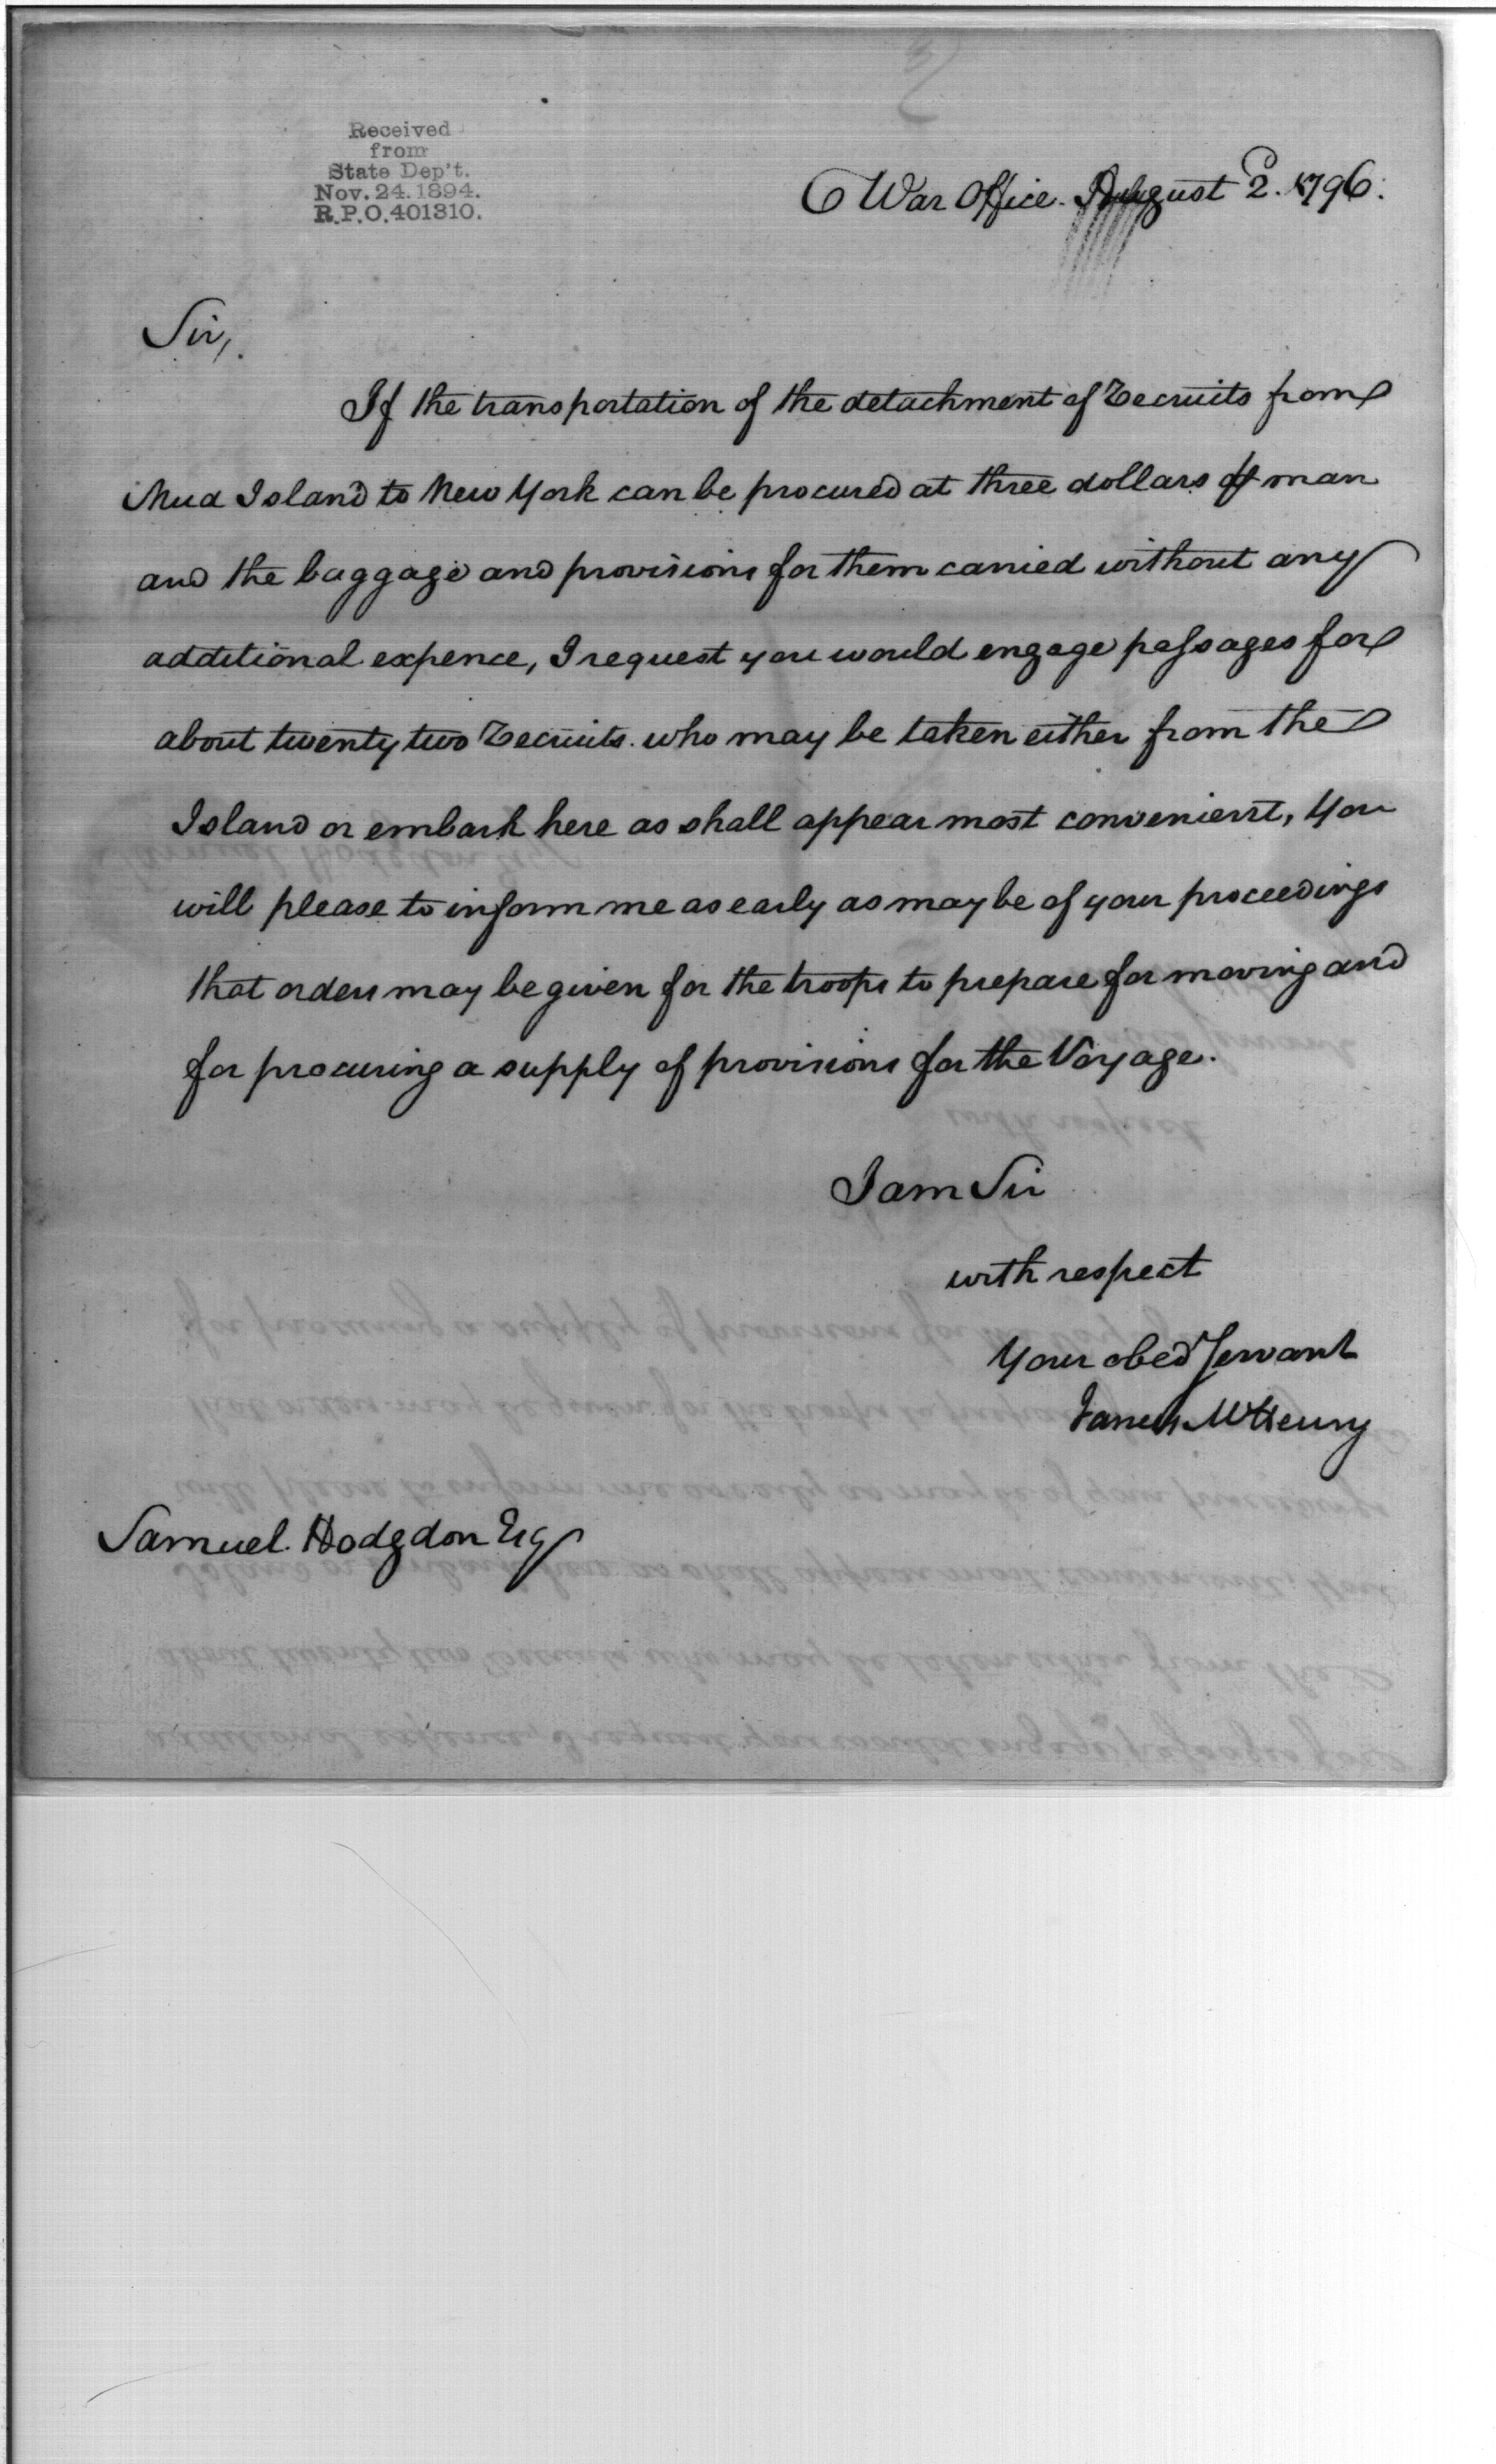 Received
from
State Dep't.
Nov. 24. 1894.
R.P.O. 401310.
War Office. August 2. 1796.
Sir,
If the transportation of the detachment of Recruits from
Mud Island to New York can be procured at three dollars ⅌ man
and the baggage and provisions for them carried without any
additional expence, I request you would engage passages for
about twenty two Recruits. who may be taken either from the
Island or embark here as shall appear most convenient, You
will please to inform me as early as may be of your proceedings
that orders may be given for the troops to prepare for moving and
for procuring a supply of provisions for the Voyage.
I am Sir
with respect
Your obed Servant
James McHenry
Samuel. Hodgdon Esq